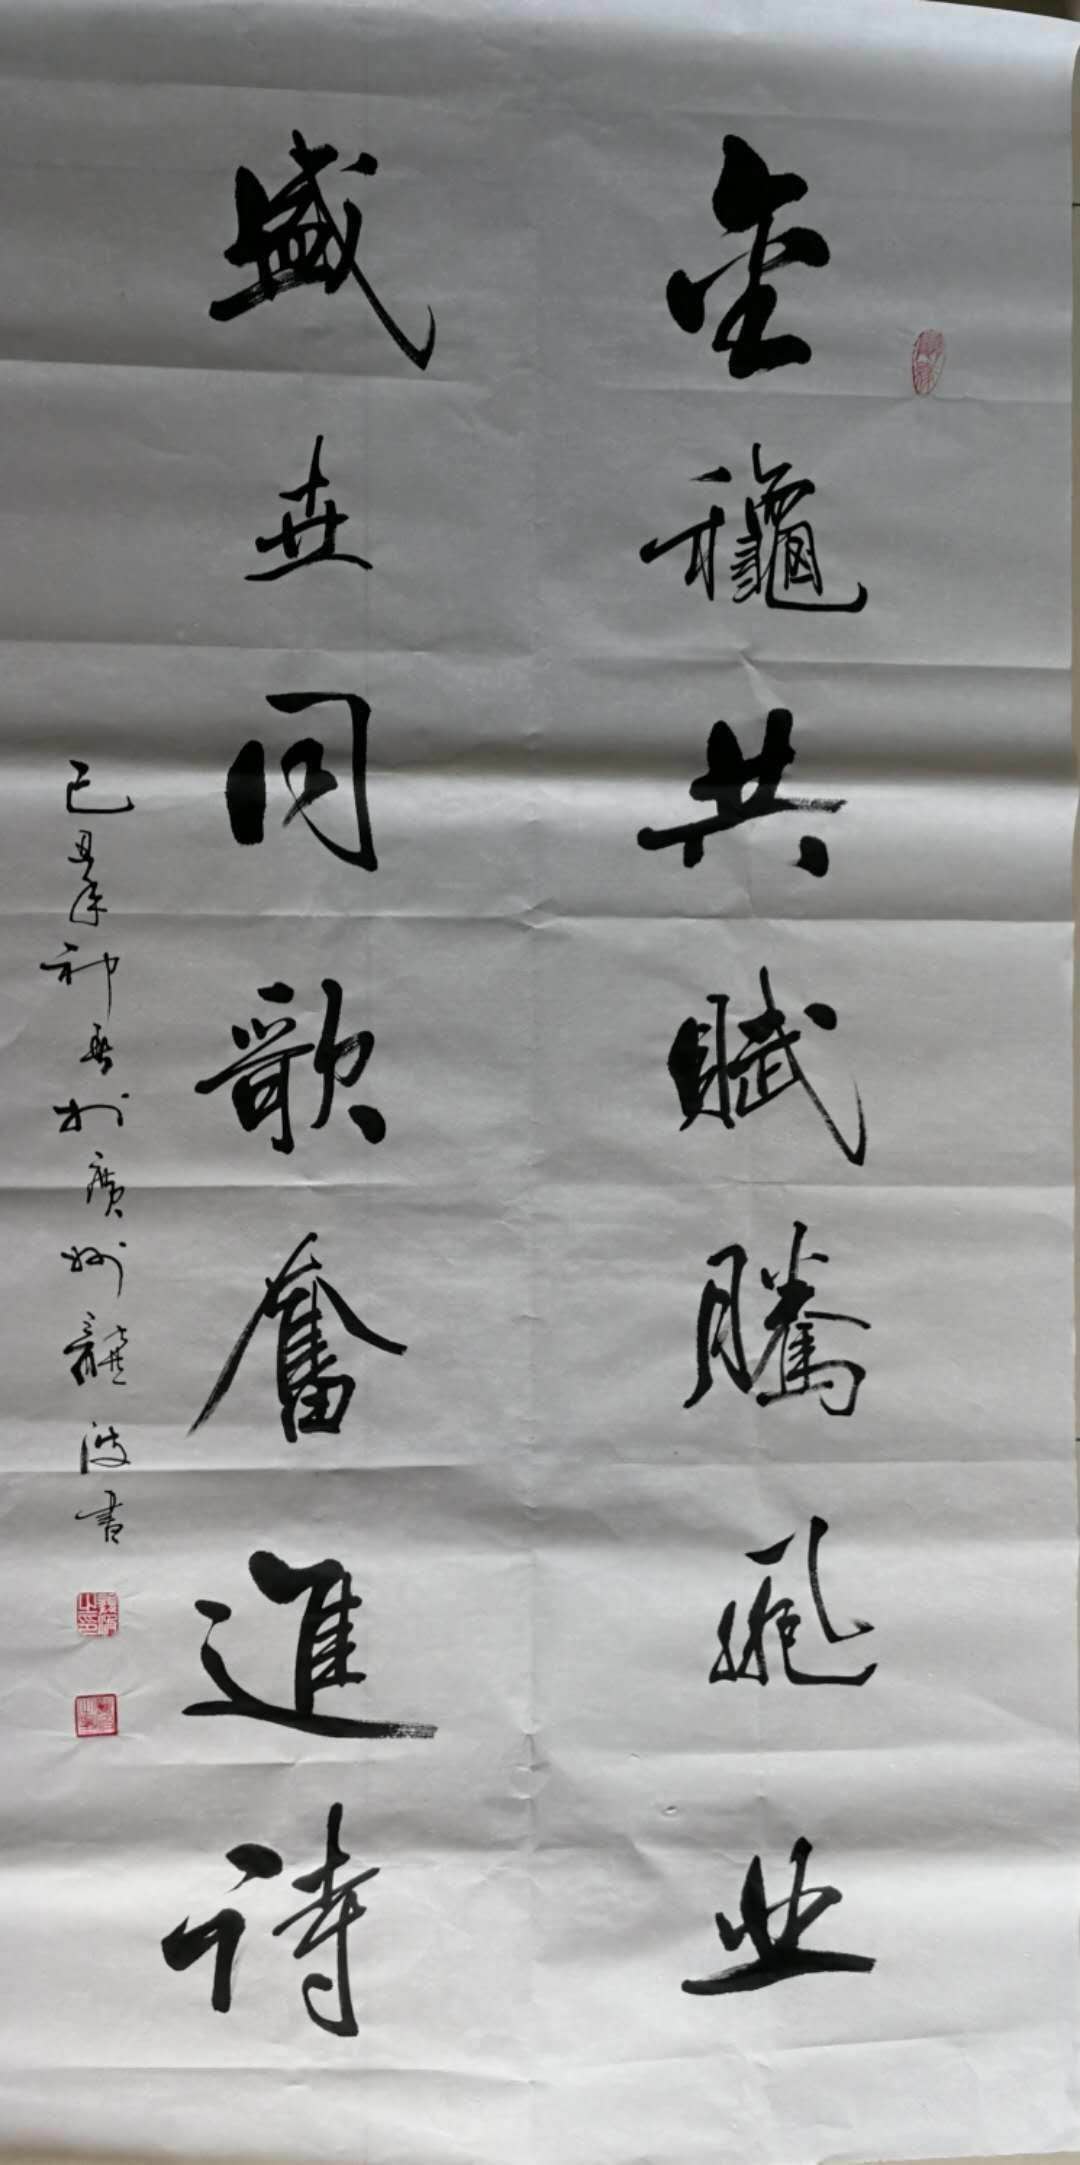 金龝共賦騰飛业
盛世同歌奮進詩
己丑年春於廣州龔波書